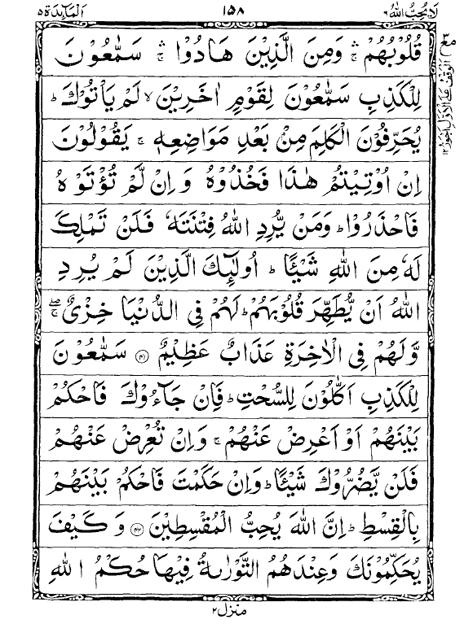 لَا يُحِبُّ اللّٰهُ ٦ ١٥٨ اَلْمَآئِدَة ٥
قُلُوْبُهُمْ ۛۚ وَمِنَ الَّذِيْنَ هَادُوْا ۛۚ سَمّٰعُوْنَ
لِلْكَذِبِ سَمّٰعُوْنَ لِقَوْمٍ اٰخَرِيْنَ ۙ لَمْ يَاْتُوْكَ ؕ
يُحَرِّفُوْنَ الْكَلِمَ مِنْۢ بَعْدِ مَوَاضِعِهٖ ۚ يَقُوْلُوْنَ
اِنْ اُوْتِيْتُمْ هٰذَا فَخُذُوْهُ وَاِنْ لَّمْ تُؤْتَوْهُ
فَاحْذَرُوْا ؕ وَمَنْ يُّرِدِ اللّٰهُ فِتْنَتَهٗ فَلَنْ تَمْلِكَ
لَهٗ مِنَ اللّٰهِ شَيْـًٔا ؕ اُولٰٓئِكَ الَّذِيْنَ لَمْ يُرِدِ
اللّٰهُ اَنْ يُّطَهِّرَ قُلُوْبَهُمْ ؕ لَهُمْ فِى الدُّنْيَا خِزْىٌ ۖۚ
وَّلَهُمْ فِى الْاٰخِرَةِ عَذَابٌ عَظِيْمٌ ﴿۴۱﴾ سَمّٰعُوْنَ
لِلْكَذِبِ اَكّٰلُوْنَ لِلسُّحْتِ ؕ فَاِنْ جَآءُوْكَ فَاحْكُمْ
بَيْنَهُمْ اَوْ اَعْرِضْ عَنْهُمْ ۚ وَاِنْ تُعْرِضْ عَنْهُمْ
فَلَنْ يَّضُرُّوْكَ شَيْـًٔا ؕ وَاِنْ حَكَمْتَ فَاحْكُمْ بَيْنَهُمْ
بِالْقِسْطِ ؕ اِنَّ اللّٰهَ يُحِبُّ الْمُقْسِطِيْنَ ﴿۴۲﴾ وَكَيْفَ
يُحَكِّمُوْنَكَ وَعِنْدَهُمُ التَّوْرٰىةُ فِيْهَا حُكْمُ اللّٰهِ
منزل ٢